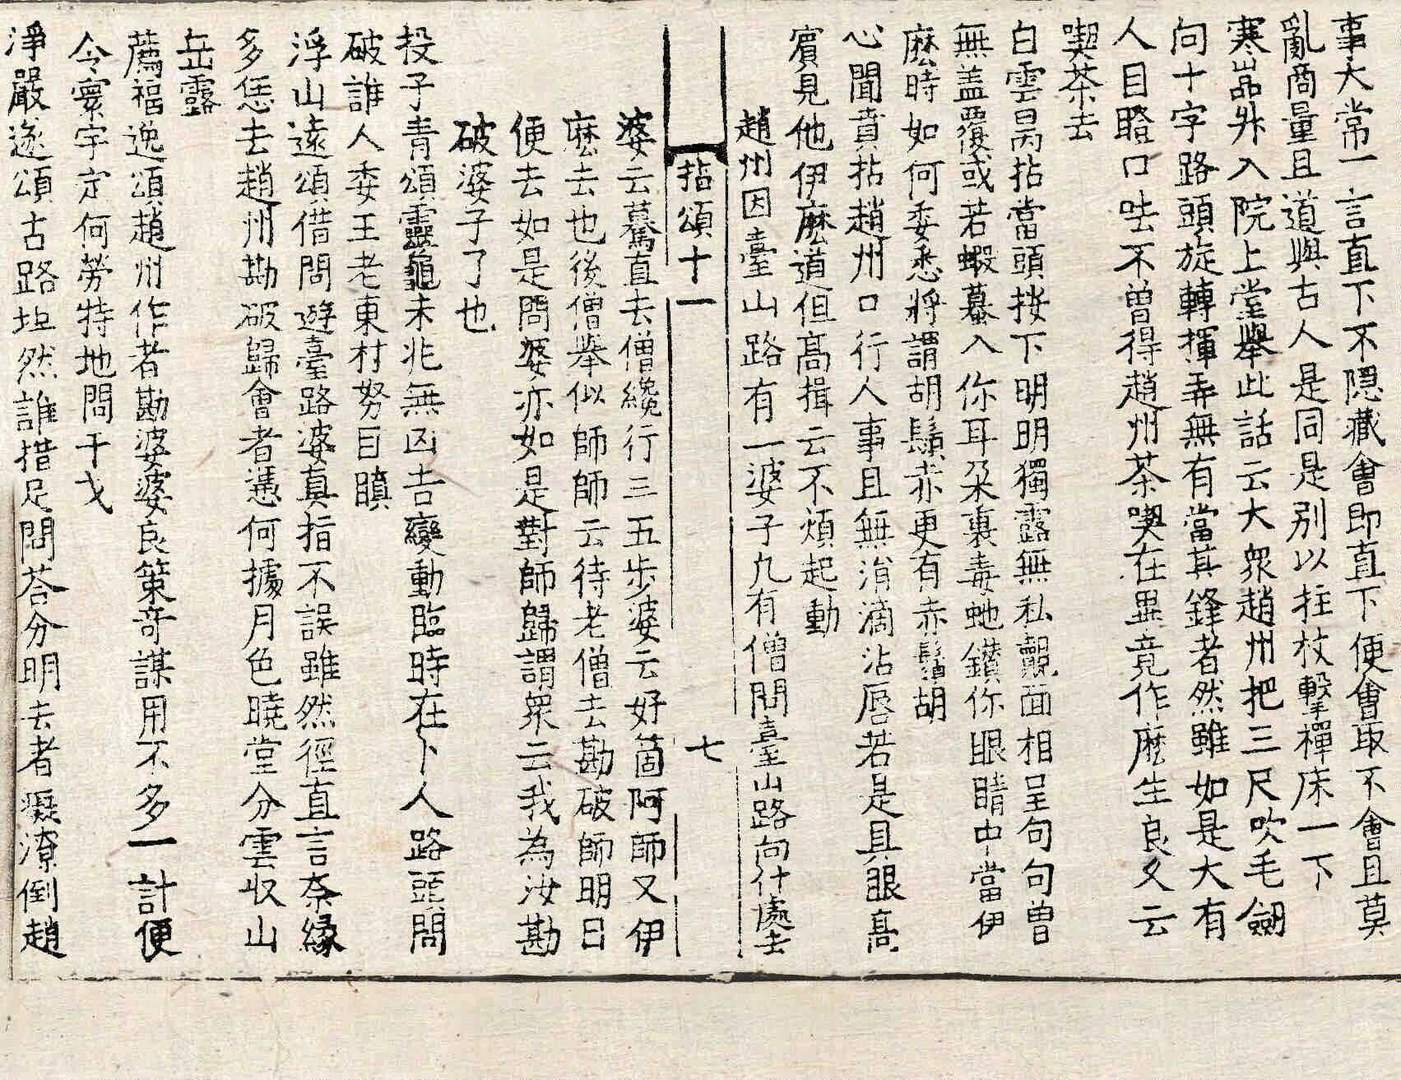 事大常一言直下不隱藏會即直下便會取不會且莫
亂商量且道與古人是同是別以拄杖擊禪床一下
寒嵓升入院上堂舉此話云大眾趙州把三尺吹毛劒
向十字路頭旋轉揮弄無有當其鋒者然雖如是大有
人目瞪口呿不曾得趙州茶喫在畢竟作麽生良久云
喫茶去
白雲昺拈當頭按下明明獨露無私覿面相呈句句曾
無盖覆或若蝦蟇入你耳朵裏毒虵鑽你眼睛中當伊
麽時如何委悉將謂胡鬚赤更有赤鬚胡
心聞賁拈趙州口行人事且無涓滴沾唇若是具眼高
賓見他伊麽道但高揖云不煩起動
趙州因臺山路有一婆子凡有僧問臺山路向什處去
拈頌十一 七
婆云驀直去僧纔行三五步婆云好箇阿師又伊
麽去也後僧舉似師師云待老僧去勘破師明日
便去如是問婆亦如是對師歸謂眾云我為汝勘
破婆子了也
投子青頌靈龜未兆無凶吉變動臨時在卜人路頭問
破誰人委王老東村努目瞋
浮山遠頌借問遊臺路婆真指不誤雖然徑直言奈緣
多恁去趙州勘破歸會者憑何據月色曉堂分雲収山
岳露
薦福逸頌趙州作者勘婆婆良策奇謀用不多一計便
令寰宇定何勞特地問干戈
淨嚴遂頌古路坦然誰措足問荅分明去者癡潦倒趙